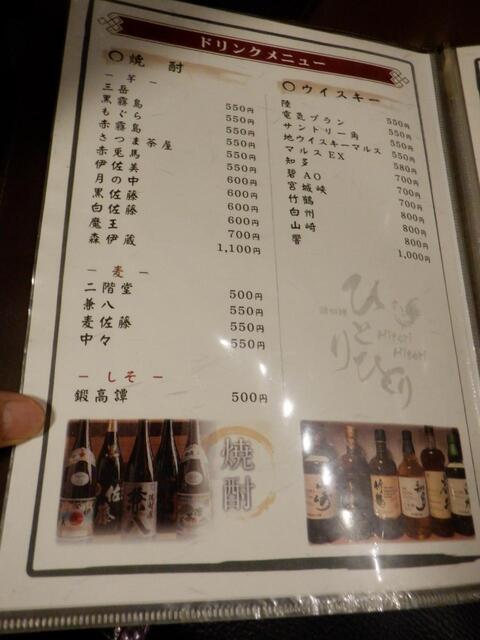 ドリンクメニュー
〇焼 酎
－ 芋 －
三岳 550円
黒霧島 550円
もぐら 550円
赤霧島 550円
さつま茶屋 550円
赤兎馬 550円
伊佐美 600円
月の中 600円
黒佐藤 600円
白佐藤 600円
魔王 700円
森伊蔵 1,100円
－ 麦 －
二階堂 500円
兼八 550円
麦佐藤 550円
中々 550円
－ しそ －
鍛高譚 500円
〇ウイスキー
陸 550円
電気ブラン 550円
サントリー角 550円
地ウイスキーマルス 550円
マルスEX 580円
知多 700円
碧AO 700円
宮城峡 700円
竹鶴 800円
白州 800円
山崎 800円
響 1,000円
ひとりひとり
Hitori
Hitori
焼酎
佐藤
兼八
竹鶴